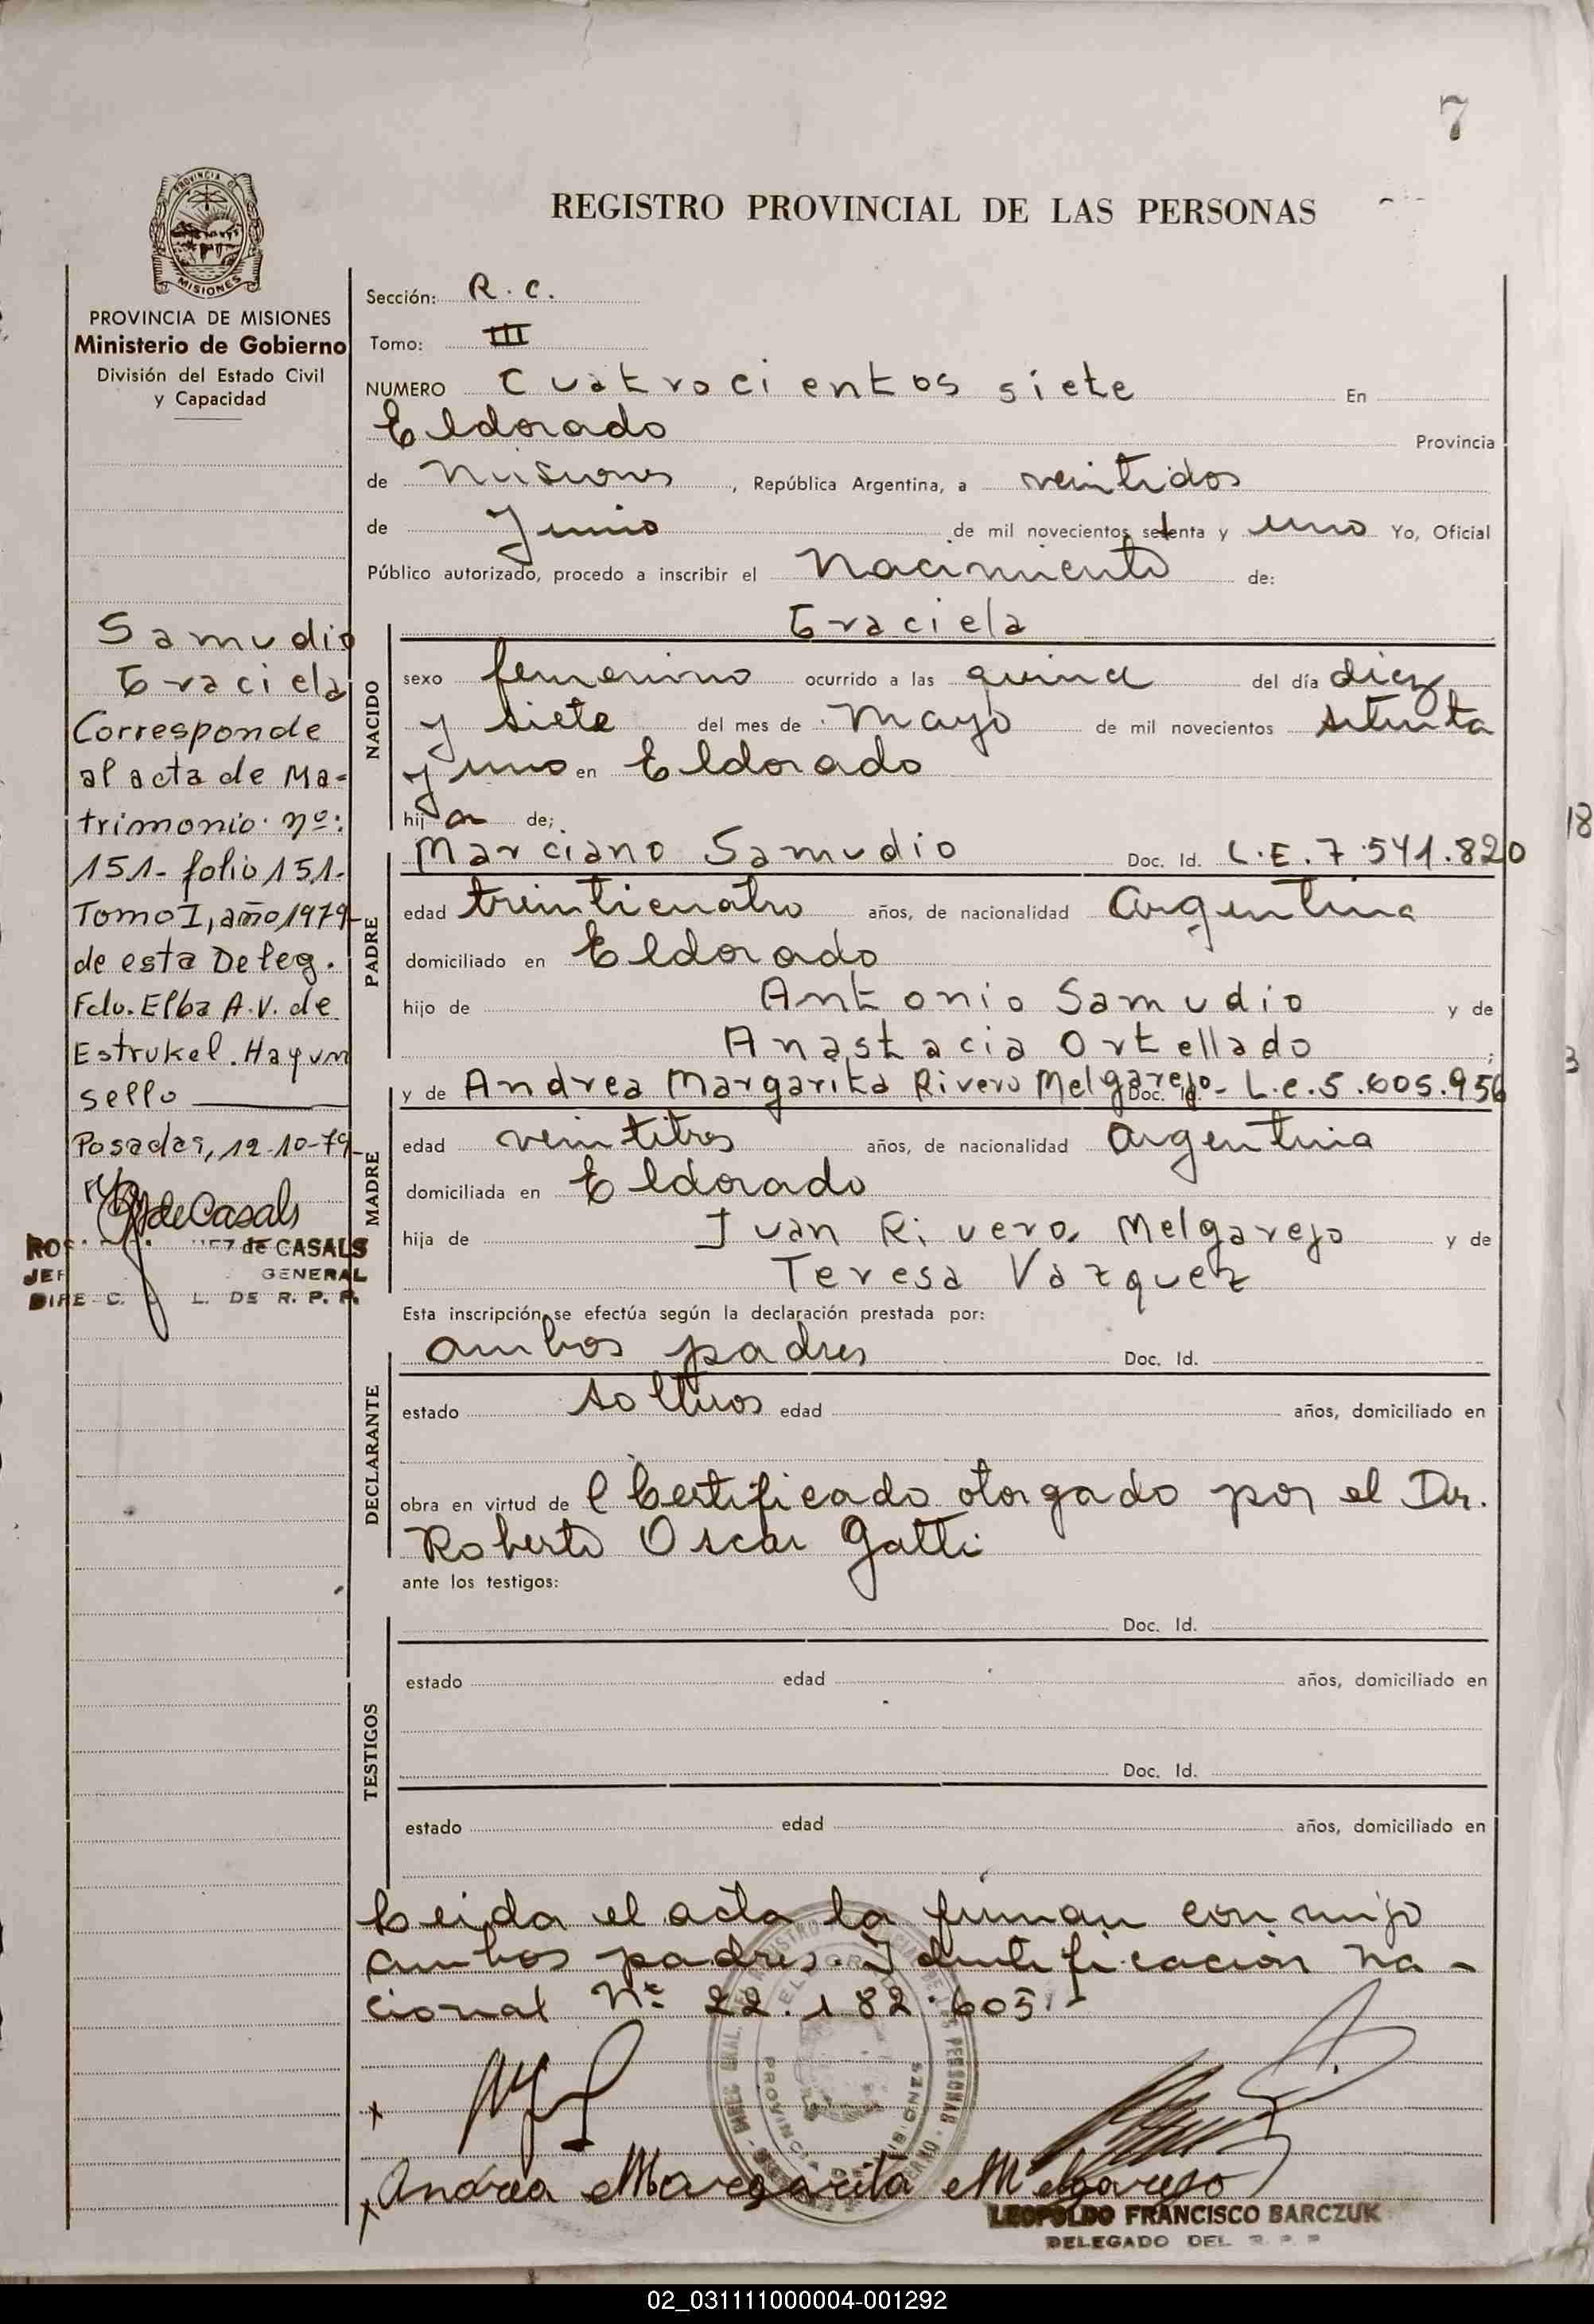 7
REGISTRO PROVINCIAL DE LAS PERSONAS
PROVINCIA DE
MISIONES
PROVINCIA DE MISIONES
Ministerio de Gobierno
División del Estado Civil
y Capacidad
Samudio
Graciela
Corresponde
al acta de Ma-
trimonio nº:
151- folio 151-
Tomo I, año 1979-
de esta Deleg.
Fdo. Elba A.V. de
Estrukel. Hay un
sello
Posadas, 12-10-79-
de Casals
de CASALS
GENERAL
L. DE R. P. P.
Sección: R. C.
Tomo: III
NUMERO Cuatrocientos siete En
Eldorado Provincia
de Misiones, República Argentina, a veintidos
de Junio de mil novecientos setenta y uno Yo, Oficial
Público autorizado, procedo a inscribir el Nacimiento de:
NACIDO
Graciela
sexo femenino ocurrido a las quince del día diez
y siete del mes de Mayo de mil novecientos setenta
y uno en Eldorado
hija de;
PADRE
Marciano Samudio Doc. Id. L.E. 7.541.820
edad treinticuatro años, de nacionalidad Argentina
domiciliado en Eldorado
hijo de Antonio Samudio y de
Anastacia Ortellado;
MADRE
y de Andrea Margarita Rivero Melgarejo- Doc. Id. L.c.5.605.956
edad veintitres años, de nacionalidad Argentina
domiciliada en Eldorado
hija de Juan Rivero Melgarejo y de
Teresa Vazquez
Esta inscripción se efectúa según la declaración prestada por:
DECLARANTE
ambos padres Doc. Id.
estado solteros edad años, domiciliado en
obra en virtud de l Certificado otorgado por el Dr.
Roberto Oscar Gatti
ante los testigos:
TESTIGOS
Doc. Id.
estado edad años, domiciliado en
Doc. Id.
estado edad años, domiciliado en
Leida el acta la firman conmigo
ambos padres. Identificacion na-
cional Nº 22.182.605.-
x
x Andrea Margarita Melgarejo
LEOPOLDO FRANCISCO BARCZUK
DELEGADO DEL R P P
18
3
02_031111000004-001292